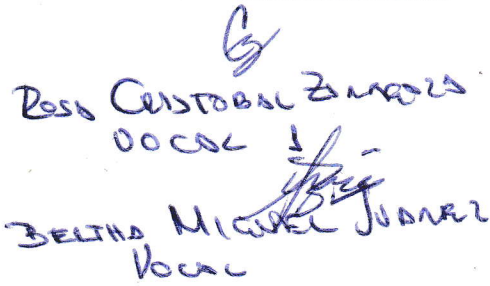 Rosa Cristobal Zaragoza
Vocal 1
Bertha Miguel Juarez
Vocal